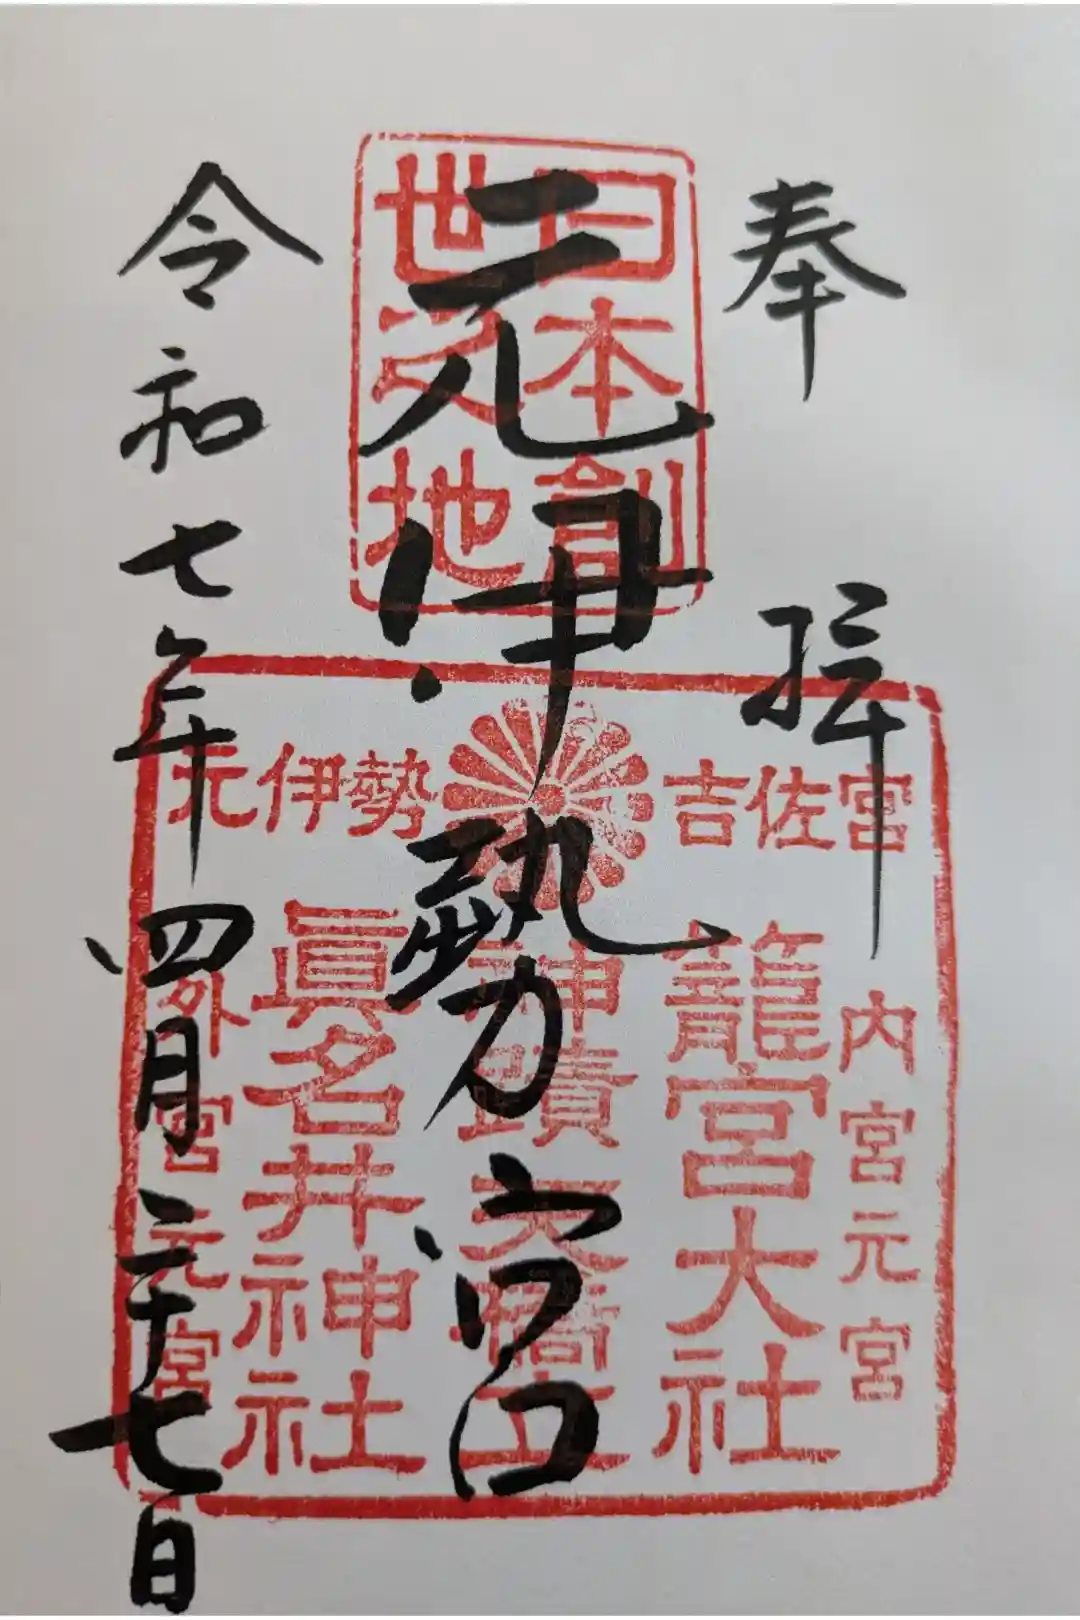 奉拝
元伊勢宮
令和七年四月二十七日
日本創
世之地
吉佐宮
元伊勢
内宮元宮
籠宮大社
神蹟天橋立
眞名井神社
外宮元宮